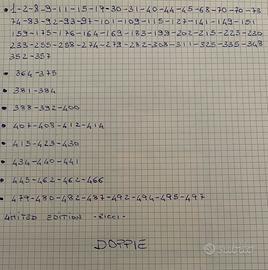 1-2-8-9-11-15-19-30-31-40-44-45-68-70-70-73
74-83-92-93-97-101-109-115-127-141-149-151
159-175-176-164-169-183-199-202-215-223-230
239-255-258-274-279-282-303-311-325-335-348
352-357
364-375
381-384
388-392-400
407-408-412-414
415-423-430
434-440-441
445-462-462-466
479-480-482-487-492-494-495-497
LIMITED EDITION -RICCI-
DOPPIE
subito